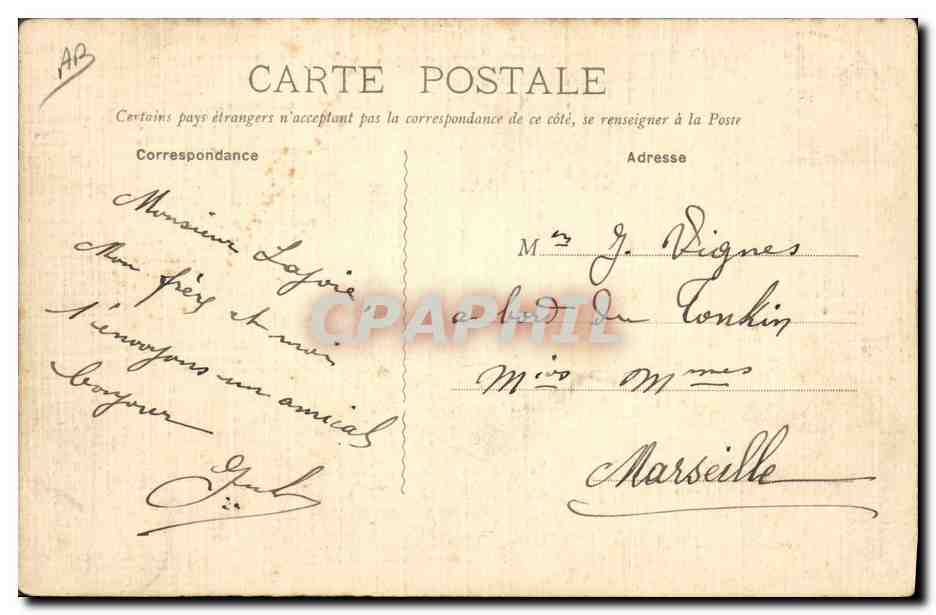 AB
CARTE POSTALE
Certains pays étrangers n'acceptent pas la correspondance de ce côté, se renseigner à la Poste
Correspondance
Adresse
Monsieur Lajoie
Mon frère et moi
t'envoyons un amical
bonjour
Mr J. Vignes
a bord du Tonkin
Mies Mmes
Marseille
CPAPHIL